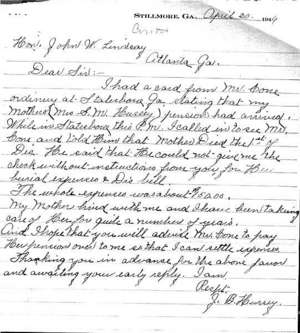 STILLMORE, GA. April 20. 19
Hon. John W. Lindsay
Atlanta Ga.
Dear Sir:-
I had a card from Mr. Cone
ordinary at Statesboro Ga, stating that my
Mother (Mrs S. M. Hursey) pension had arrived.
While in Statesboro this P.m. I called in to see Mr.
Cone and told Him that Mother Died the 1st of
Dec. He said that He could not give me the
check without instructions from you for Her
burial expenses & Drs bill.
The whole expenses was about
My Mother lived with me and I have been taking
care of Her for quite a number of years.
And I hope that you will advise Mr. Cone to pay
Her pension over to me so that I can settle expenses
Thanking you in advance for the above favor
and awaiting your early reply. I am
Respt.
J. B. Hursey.